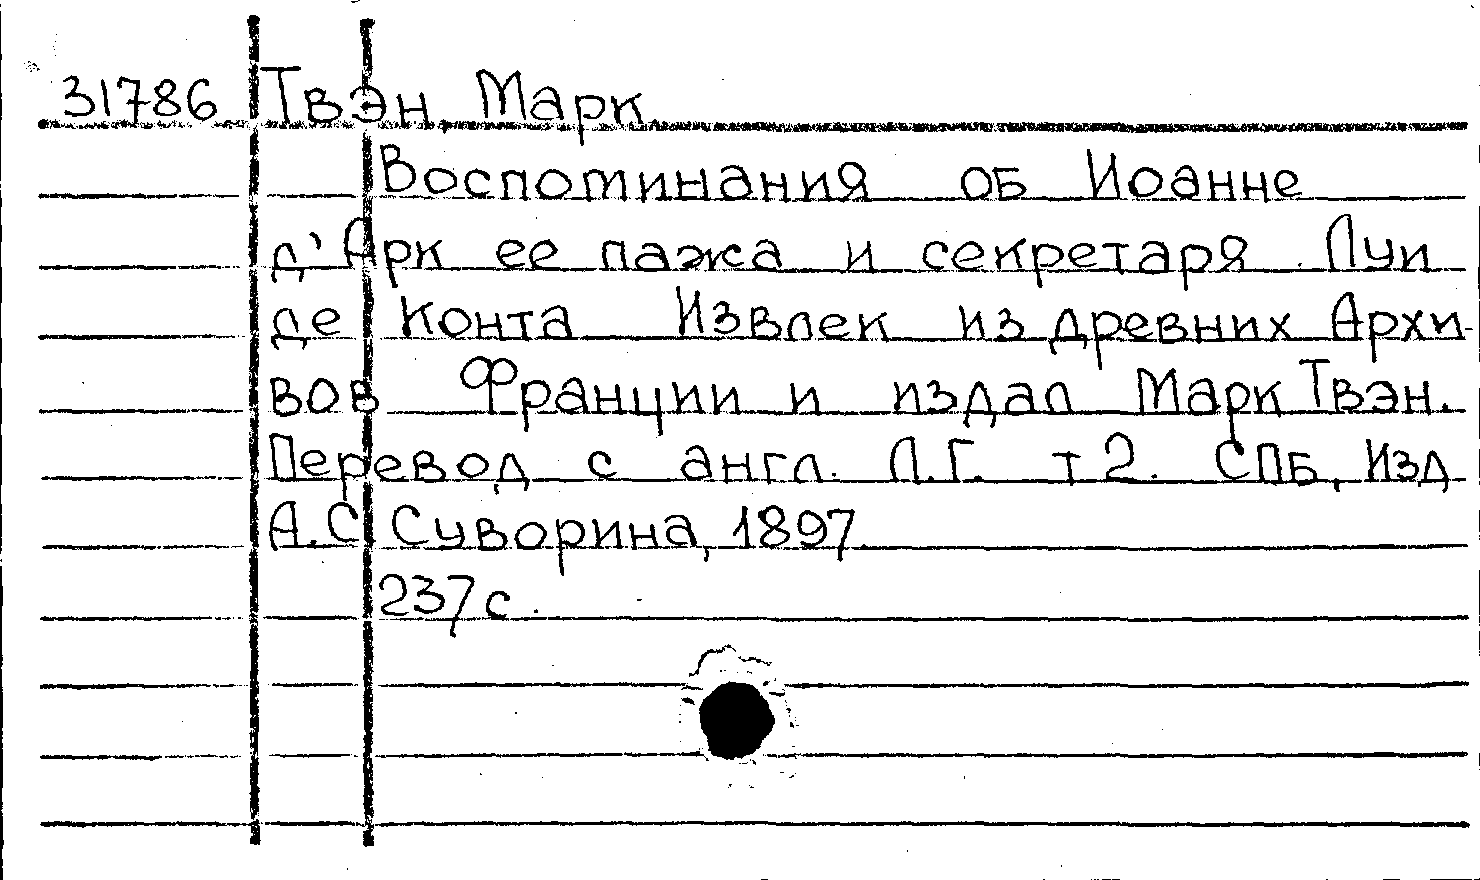 31786 Твэн Марк
Воспоминания об Иоанне
д'Арк ее пажа и секретаря Луи
де Конта Извлек из древних Архи-
вов Франции и издал Марк Твэн.
Перевод с англ. Л.Г. т 2. СПБ, Изд
А.С Суворина, 1897
237 с.